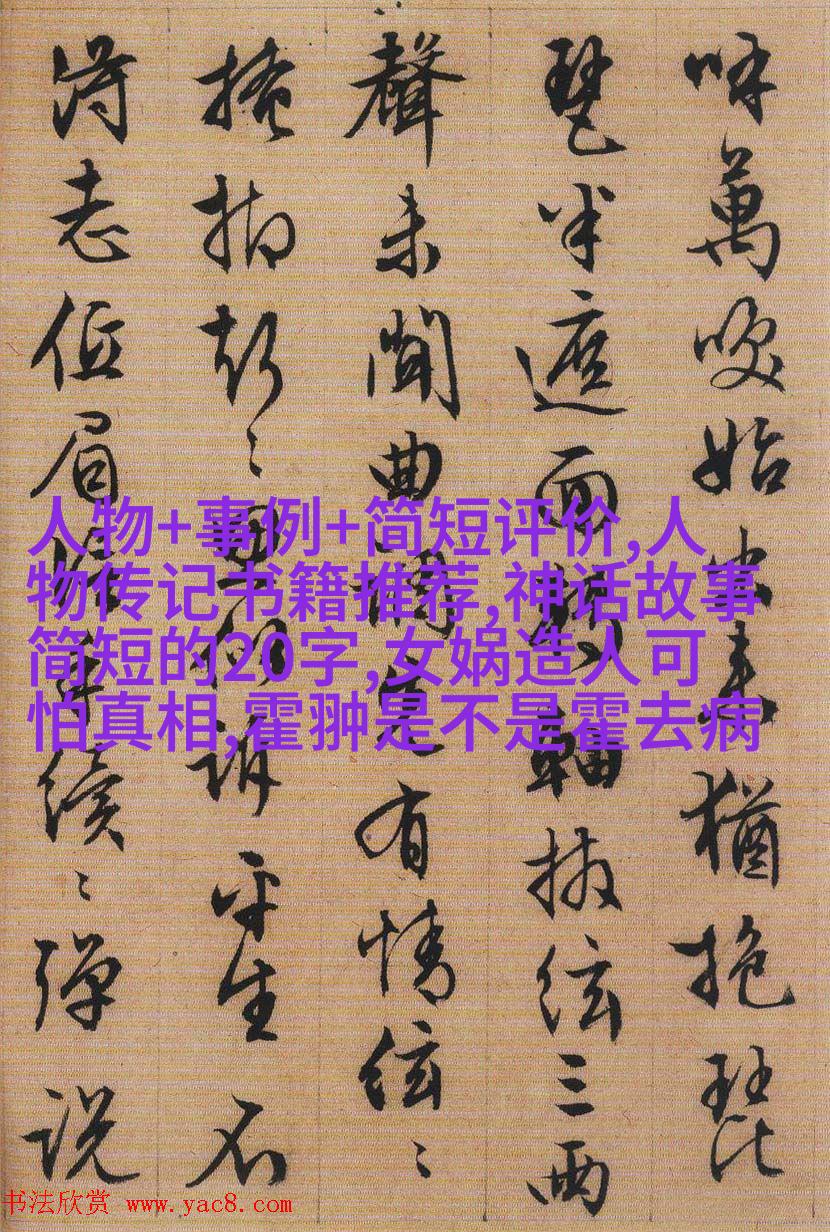 呼萬喚始出來猶抱琵
琶半遮面轉軸撥絃三兩
聲未聞曲調先有情絃〻
掩抑聲〻思似訴平生不
得志低眉信手續〻彈說
人物+事例+简短评价,人
物传记书籍推荐,神话故事
简短的20字,女娲造人可
怕真相,霍翀是不是霍去病
书法欣赏 www.yac8.com